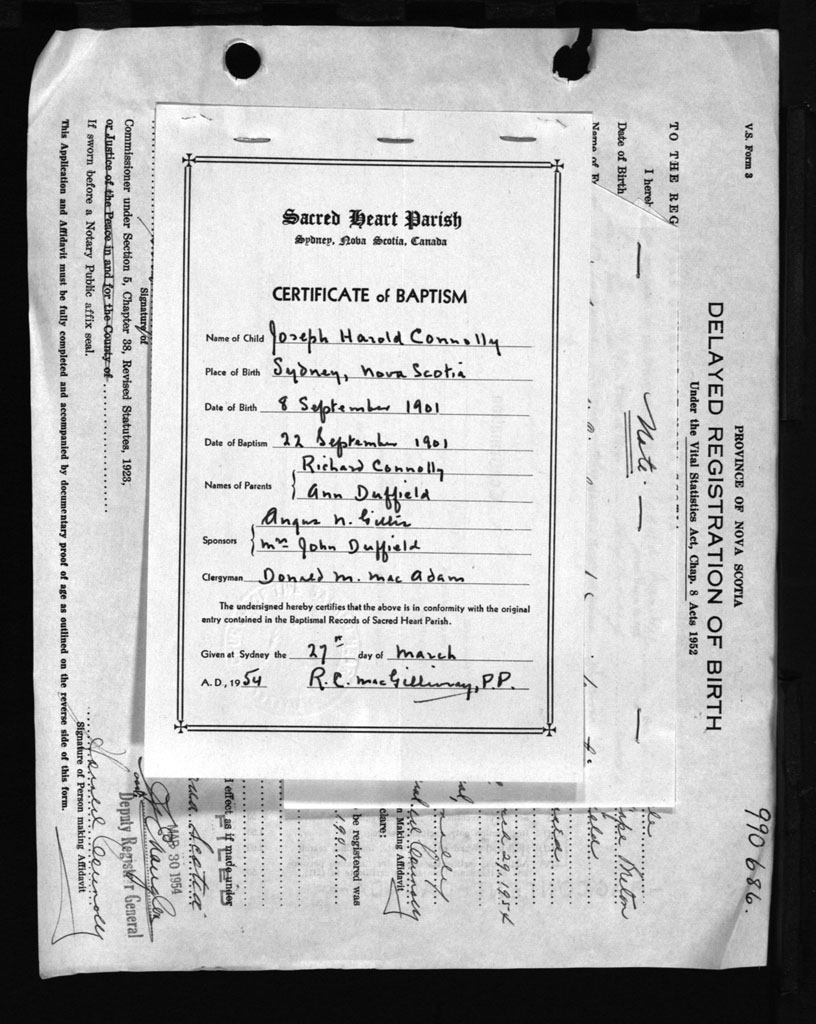 Sacred Heart Parish
Sydney, Nova Scotia, Canada
CERTIFICATE of BAPTISM
Name of Child Joseph Harold Connolly
Place of Birth Sydney, Nova Scotia
Date of Birth 8 September 1901
Date of Baptism 22 September 1901
Names of Parents Richard Connolly
Ann Duffield
Sponsors Angus N. Gillis
Mrs John Duffield
Clergyman Donald M. MacAdam
The undersigned hereby certifies that the above is in conformity with the original
entry contained in the Baptismal Records of Sacred Heart Parish.
Given at Sydney the 27th day of March
A.D., 1954 R. C. MacGillivray, P.P.
V.S. Form 3
990686.
PROVINCE OF NOVA SCOTIA
DELAYED REGISTRATION OF BIRTH
Under the Vital Statistics Act, Chap. 8 Acts 1952
TO THE REG
I hereb
Date of Birth
Name of F
— Note. —
Cape Breton
29, 1954
n Making Affidavit
clare:
be registered was
1901
l effect as if made under
FILED
Scotia
MAR 30 1954
Deputy Registrar General
Signature of
Commissioner under Section 5, Chapter 38, Revised Statutes, 1923,
or Justice of the Peace in and for the County of
If sworn before a Notary Public affix seal.
Signature of Person making Affidavit
This Application and Affidavit must be fully completed and accompanied by documentary proof of age as outlined on the reverse side of this form.